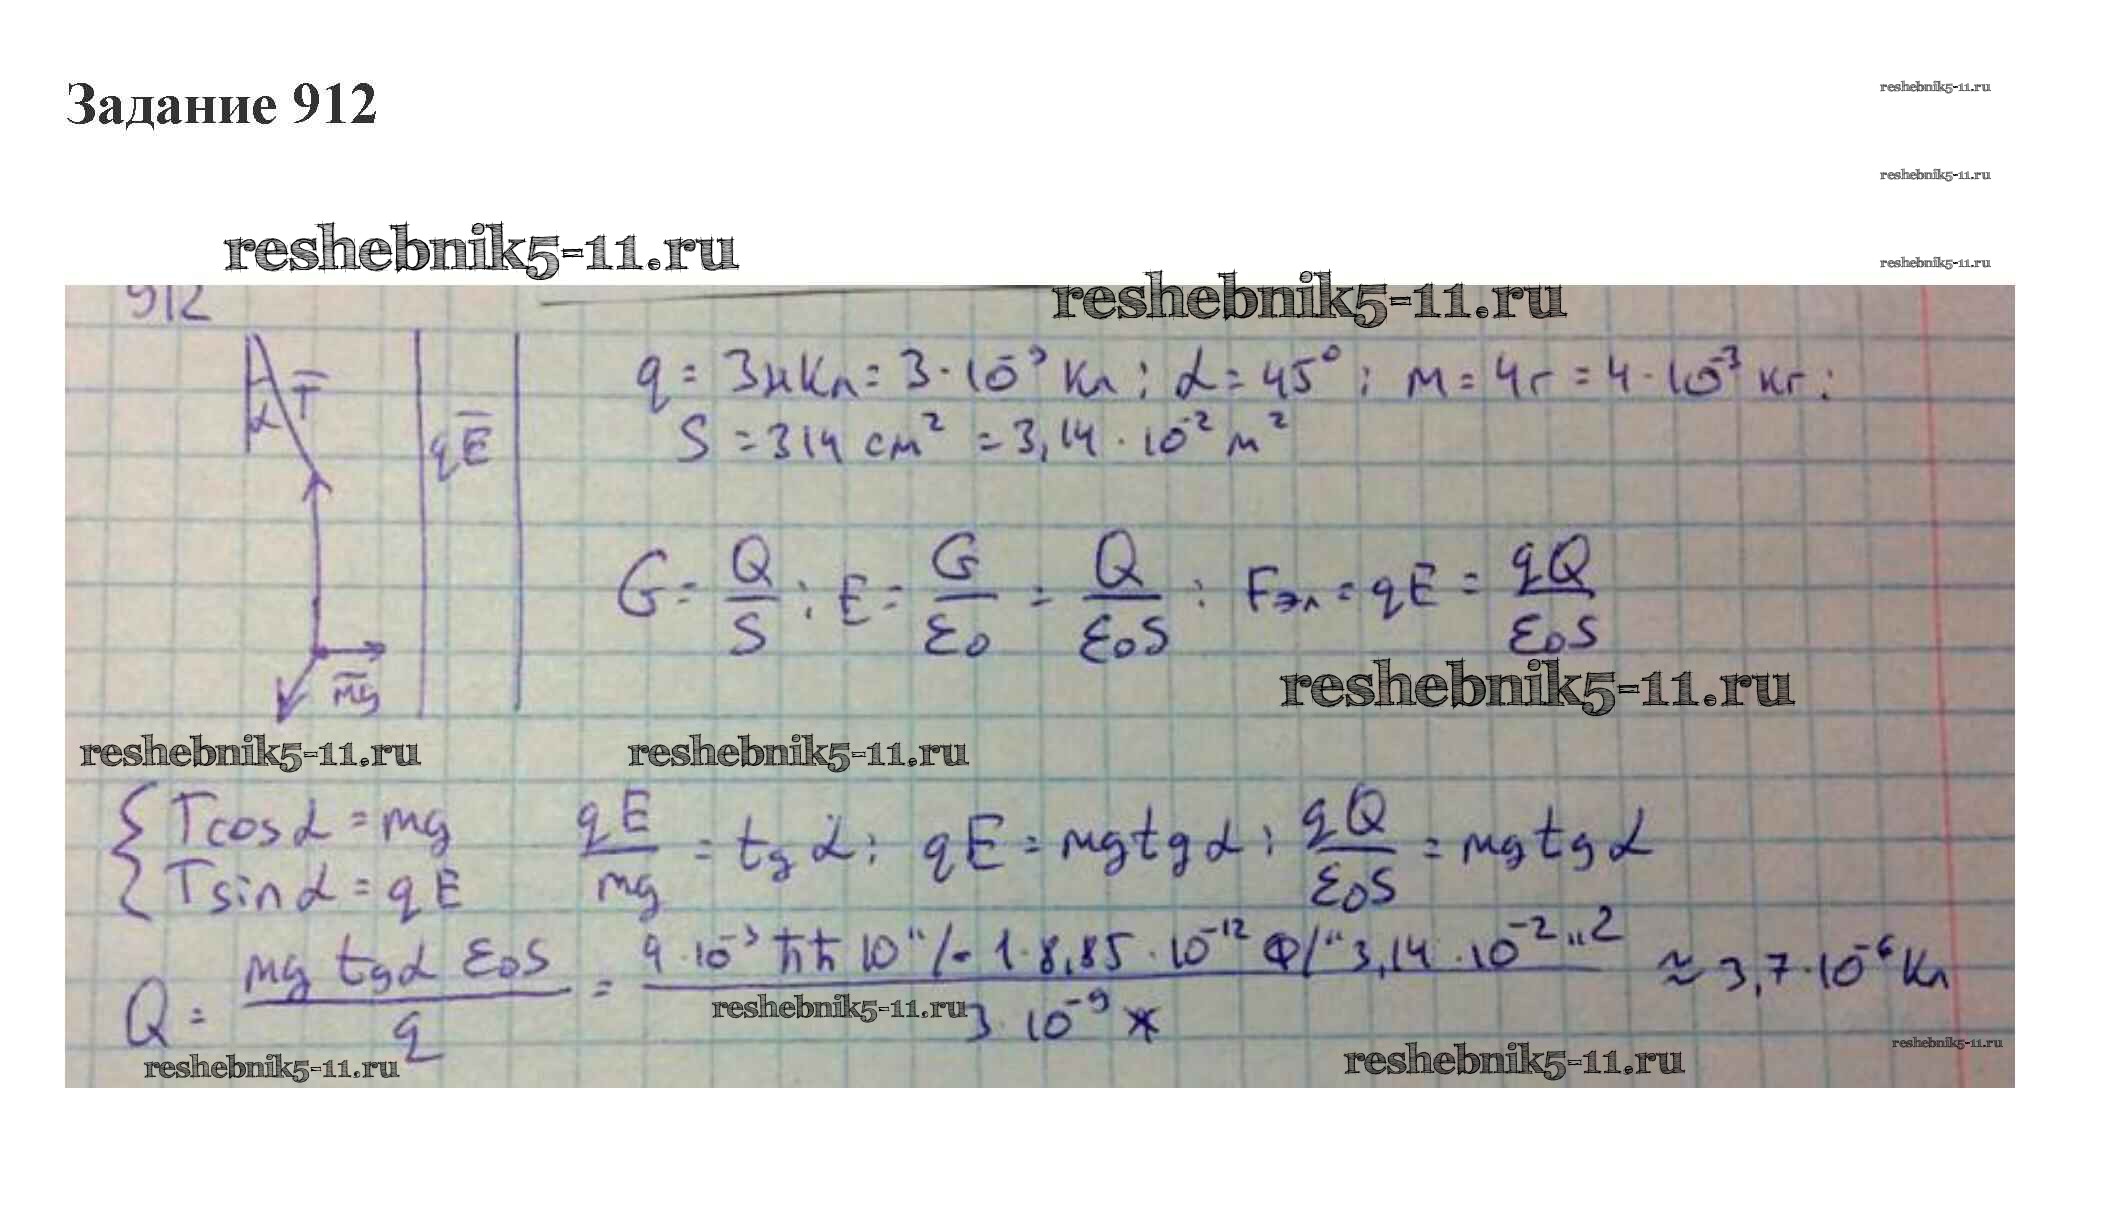 Задание 912
reshebnik5-11.ru
reshebnik5-11.ru
reshebnik5-11.ru
reshebnik5-11.ru
reshebnik5-11.ru
912
q = 3нКл = 3·10⁻⁹ Кл ; α = 45° ; м = 4г = 4·10⁻³ кг ;
T α qE
S = 314 см² = 3,14·10⁻² м²
G = Q/S ; E = G/ε₀ = Q/ε₀S ; Fэл = qE = qQ/ε₀S
mg
reshebnik5-11.ru
reshebnik5-11.ru
reshebnik5-11.ru
{ Tcosα = mg
Tsinα = qE
qE/mg = tgα ; qE = mgtgα ; qQ/ε₀S = mgtgα
Q = mg tgα ε₀S / q = 4·10⁻³ 10 1·8,85·10⁻¹² Ф/ 3,14·10⁻² / 3 10⁻⁹ ≈ 3,7·10⁻⁶ Кл
reshebnik5-11.ru
reshebnik5-11.ru
reshebnik5-11.ru
reshebnik5-11.ru